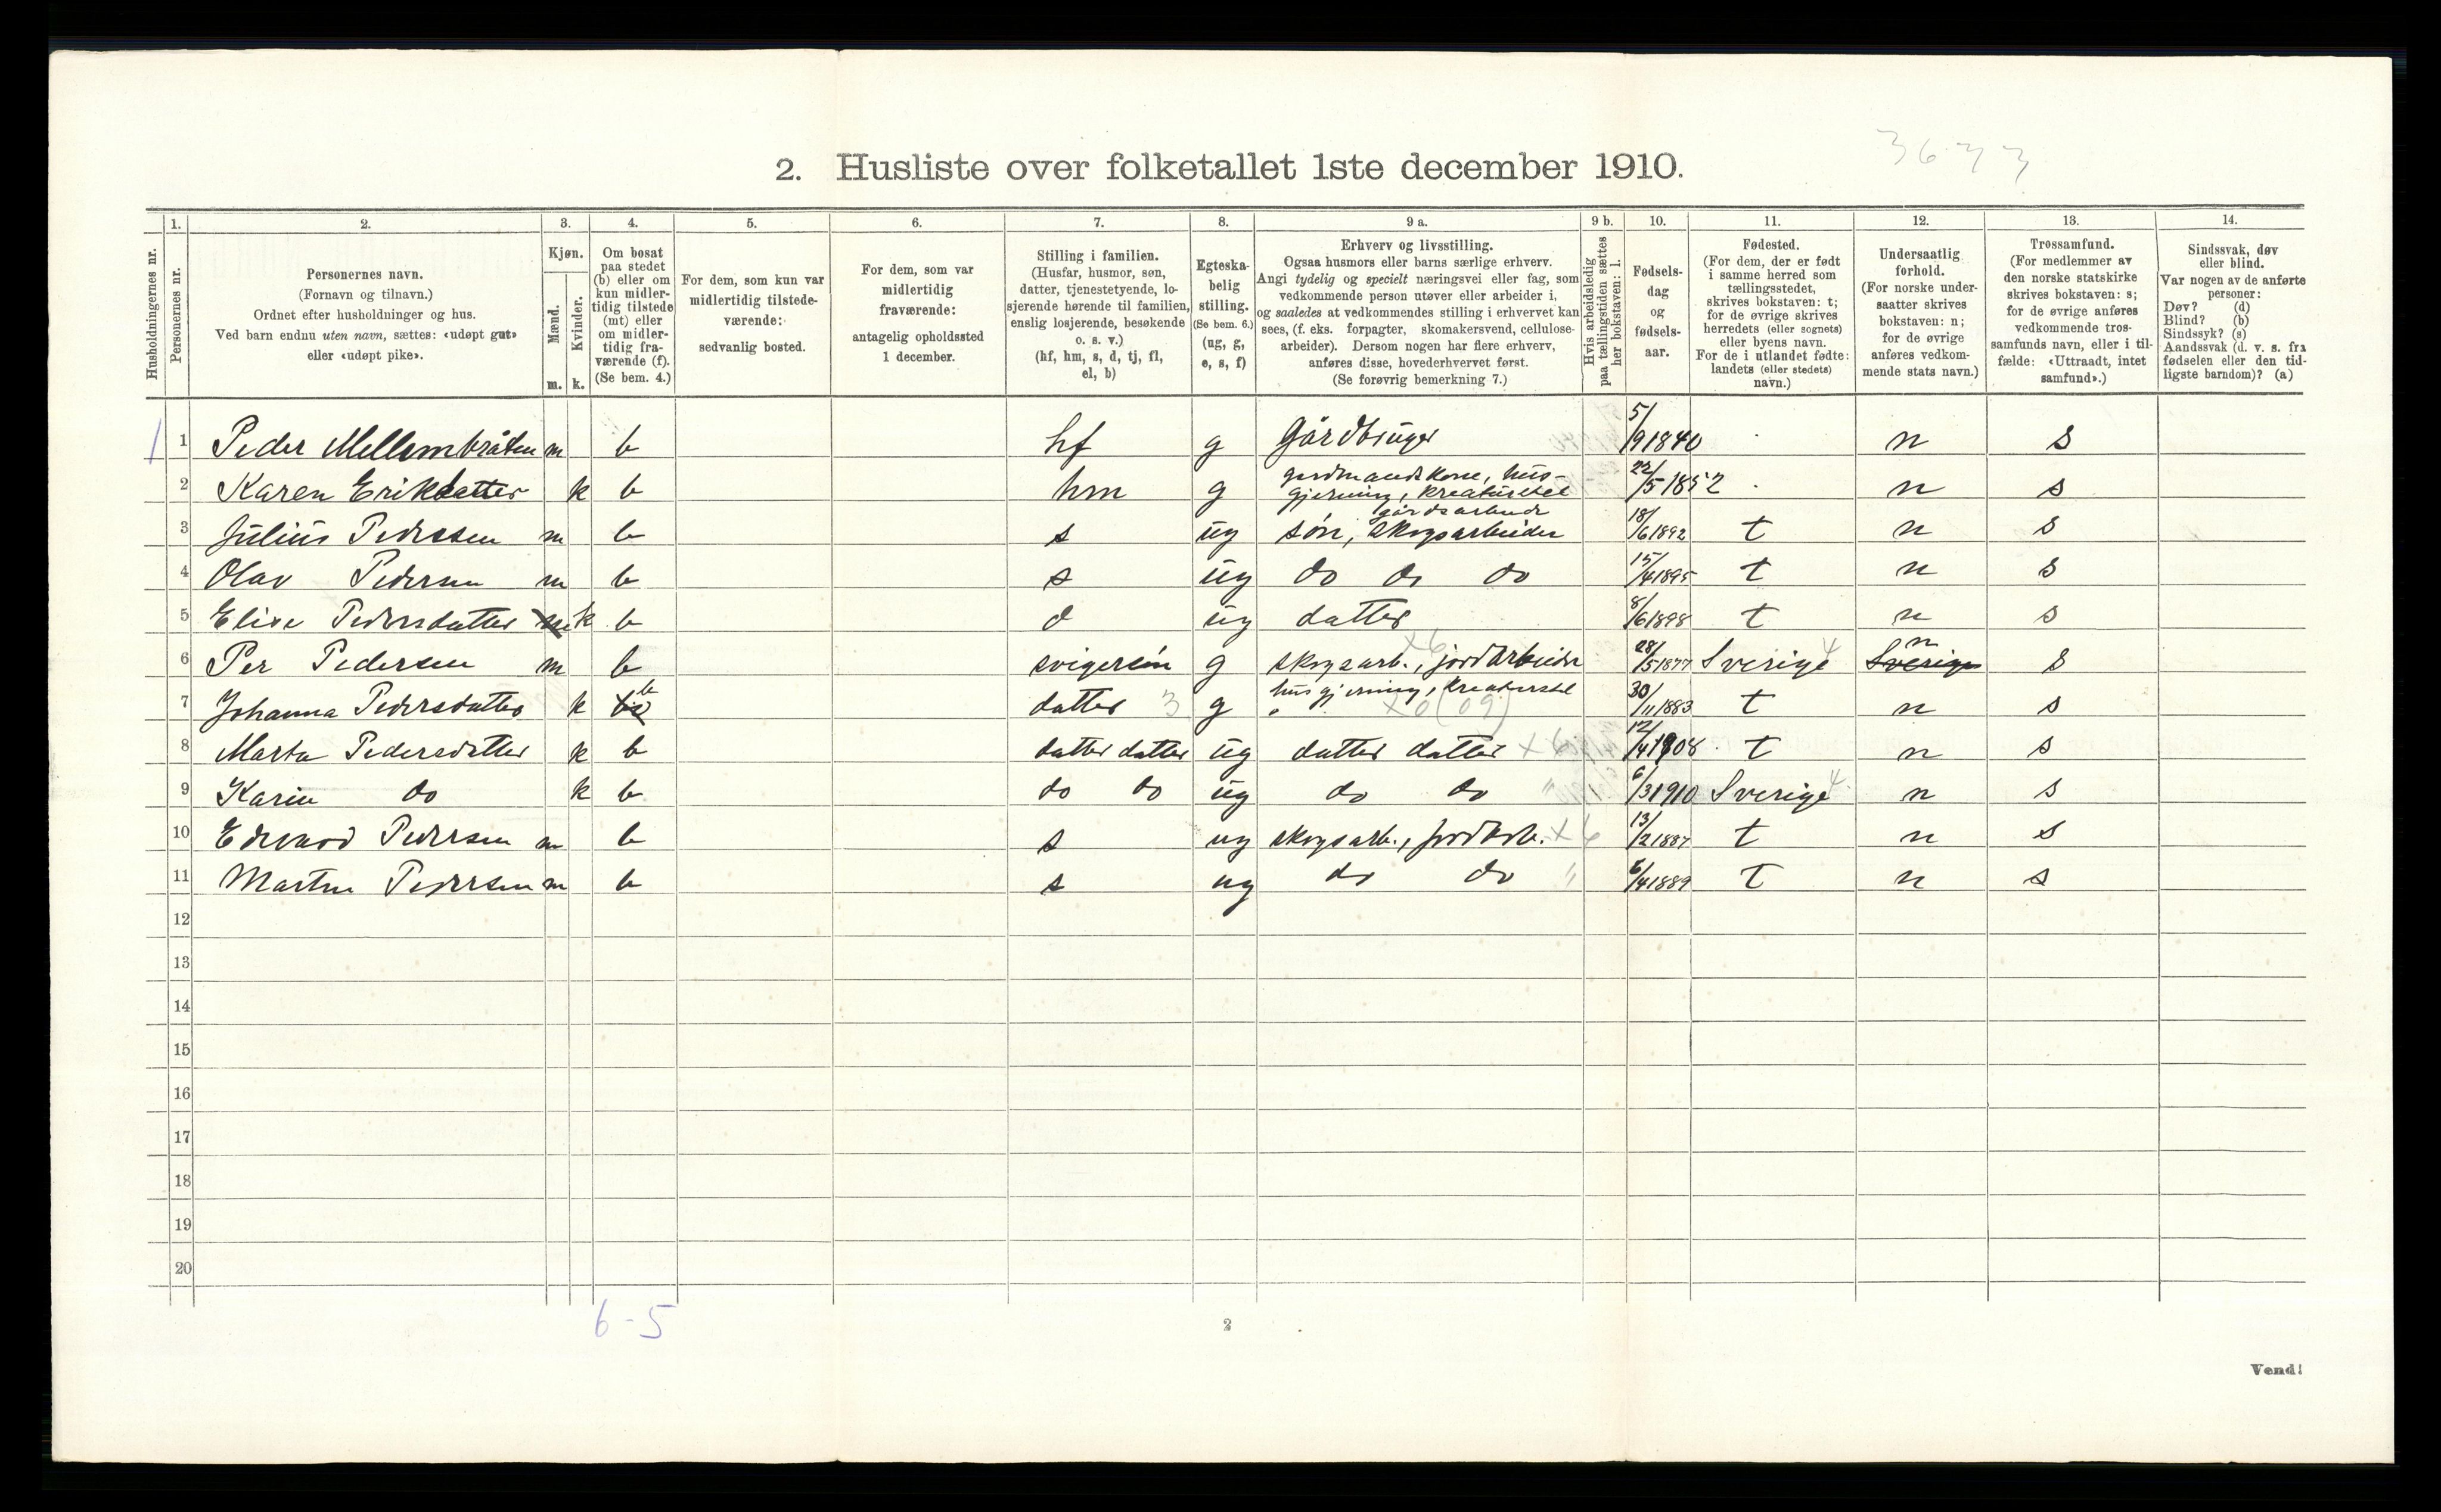 3633
2. Husliste over folketallet 1ste december 1910.
1. 2. 3. 4. 5. 6. 7. 8. 9 a. 9 b. 10. 11. 12. 13. 14.
Husholdningernes nr.
Personernes nr.
Personernes navn.
(Fornavn og tilnavn.)
Ordnet efter husholdninger og hus.
Ved barn endnu uten navn, sættes: «udøpt gut»
eller «udøpt pike».
Kjøn.
Mænd.
Kvinder.
m. k.
Om bosat
paa stedet
(b) eller om
kun midler-
tidig tilstede
(mt) eller
om midler-
tidig fra-
værende (f).
(Se bem. 4.)
For dem, som kun var
midlertidig tilstede-
værende:
sedvanlig bosted.
For dem, som var
midlertidig
fraværende:
antagelig opholdssted
1 december.
Stilling i familien.
(Husfar, husmor, søn,
datter, tjenestetyende, lo-
sjerende hørende til familien,
enslig losjerende, besøkende
o. s. v.)
(hf, hm, s, d, tj, fl,
el, b)
Egteska-
belig
stilling.
(Se bem. 6.)
(ug, g,
e, s, f)
Erhverv og livsstilling.
Ogsaa husmors eller barns særlige erhverv.
Angi tydelig og specielt næringsvei eller fag, som
vedkommende person utøver eller arbeider i,
og saaledes at vedkommendes stilling i erhvervet kan
sees, (f. eks. forpagter, skomakersvend, cellulose-
arbeider). Dersom nogen har flere erhverv,
anføres disse, hovederhvervet først.
(Se forøvrig bemerkning 7.)
Hvis arbeidsledig
paa tællingstiden sættes
her bokstaven: l.
Fødsels-
dag
og
fødsels-
aar.
Fødested.
(For dem, der er født
i samme herred som
tællingsstedet,
skrives bokstaven: t;
for de øvrige skrives
herredets (eller sognets)
eller byens navn.
For de i utlandet fødte:
landets (eller stedets)
navn.)
Undersaatlig
forhold.
(For norske under-
saatter skrives
bokstaven: n;
for de øvrige
anføres vedkom-
mende stats navn.)
Trossamfund.
(For medlemmer av
den norske statskirke
skrives bokstaven: s;
for de øvrige anføres
vedkommende tros-
samfunds navn, eller i til-
fælde: «Uttraadt, intet
samfund».)
Sindssvak, døv
eller blind.
Var nogen av de anførte
personer:
Døv? (d)
Blind? (b)
Sindssyk? (s)
Aandssvak (d. v. s. fra
fødselen eller den tid-
ligste barndom)? (a)
1 1 Peder Mellembråten m b hf g Gårdbruger 5/9 1840 n s
2 Karen Erikdatter k b hm g gardmandskone, hus-
gjerning, kreaturstel 22/5 1852 n s
3 Julius Pedersen m b s ug søn, skogsarbeider gårdsarbeide 18/6 1892 t n s
4 Olav Pedersen m b s ug do do do 15/4 1895 t n s
5 Elise Pedersdatter m k b d ug datter 8/6 1898 t n s
6 Per Pedersen m b svigersøn g skogsarb., jordarbeider x6 28/5 1877 Sverige 4 Sverige n s
7 Johanna Pedersdatter k b datter 3 g husgjerning, kreaturstel x6 (09) 30/11 1883 t n s
8 Marta Pedersdatter k b datter datter ug datter datter x6 12/4 1908 t n s
9 Karin do k b do do ug do do " 6/3 1910 Sverige 4 n s
10 Edvard Pedersen m b s ug skogsarb., jordarb. x6 13/2 1887 t n s
11 Martin Pedersen m b s ug do do " 6/4 1889 t n s
12
13
14
15
16
17
18
19
20
6 - 5
2
Vend!